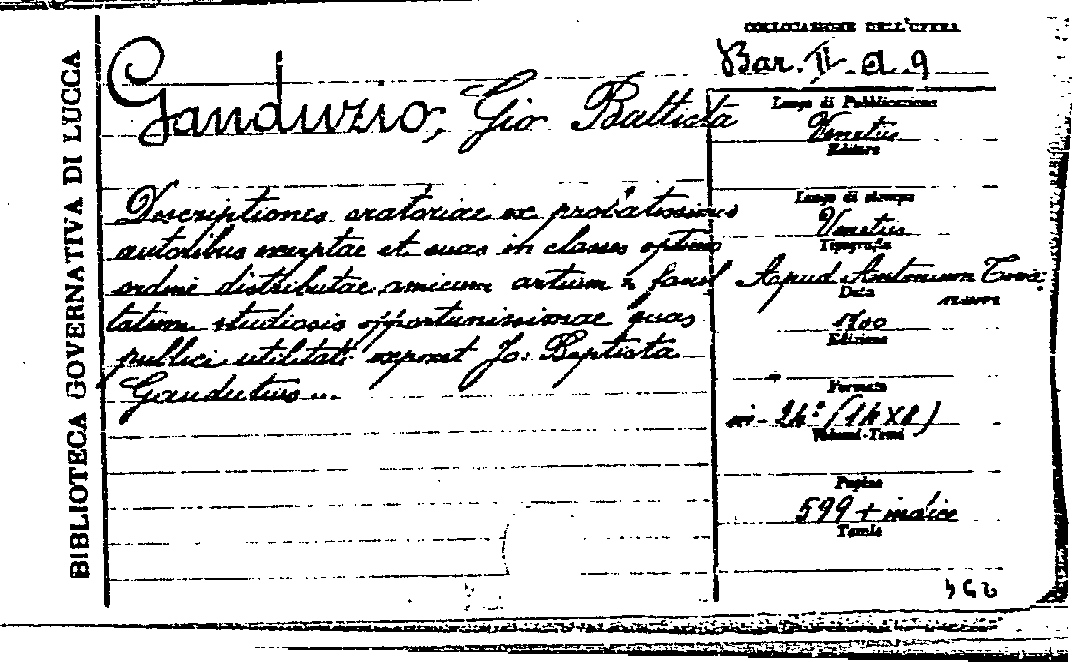 BIBLIOTECA GOVERNATIVA DI LUCCA
Ganduzio, Gio Battista
Descriptiones oratoriae ex probatissimis
autoribus excerptae et suas in classes optimo
ordine distributae amicum artium &
tatum studiosis opportunissimae quas
publici utilitati exponit Jo: Baptista
Gandutius...
COLLOCAZIONE DELL'OPERA
Bar. II. a. 9
Luogo di Pubblicazione
Venetiis
Editore
Luogo di stampa
Venetiis
Tipografia
Apud Antonium
Data
1700
Edizione
Formato
in-24° (14 X 8)
Volumi-Tomi
Pagine
599 + indice
Tavole